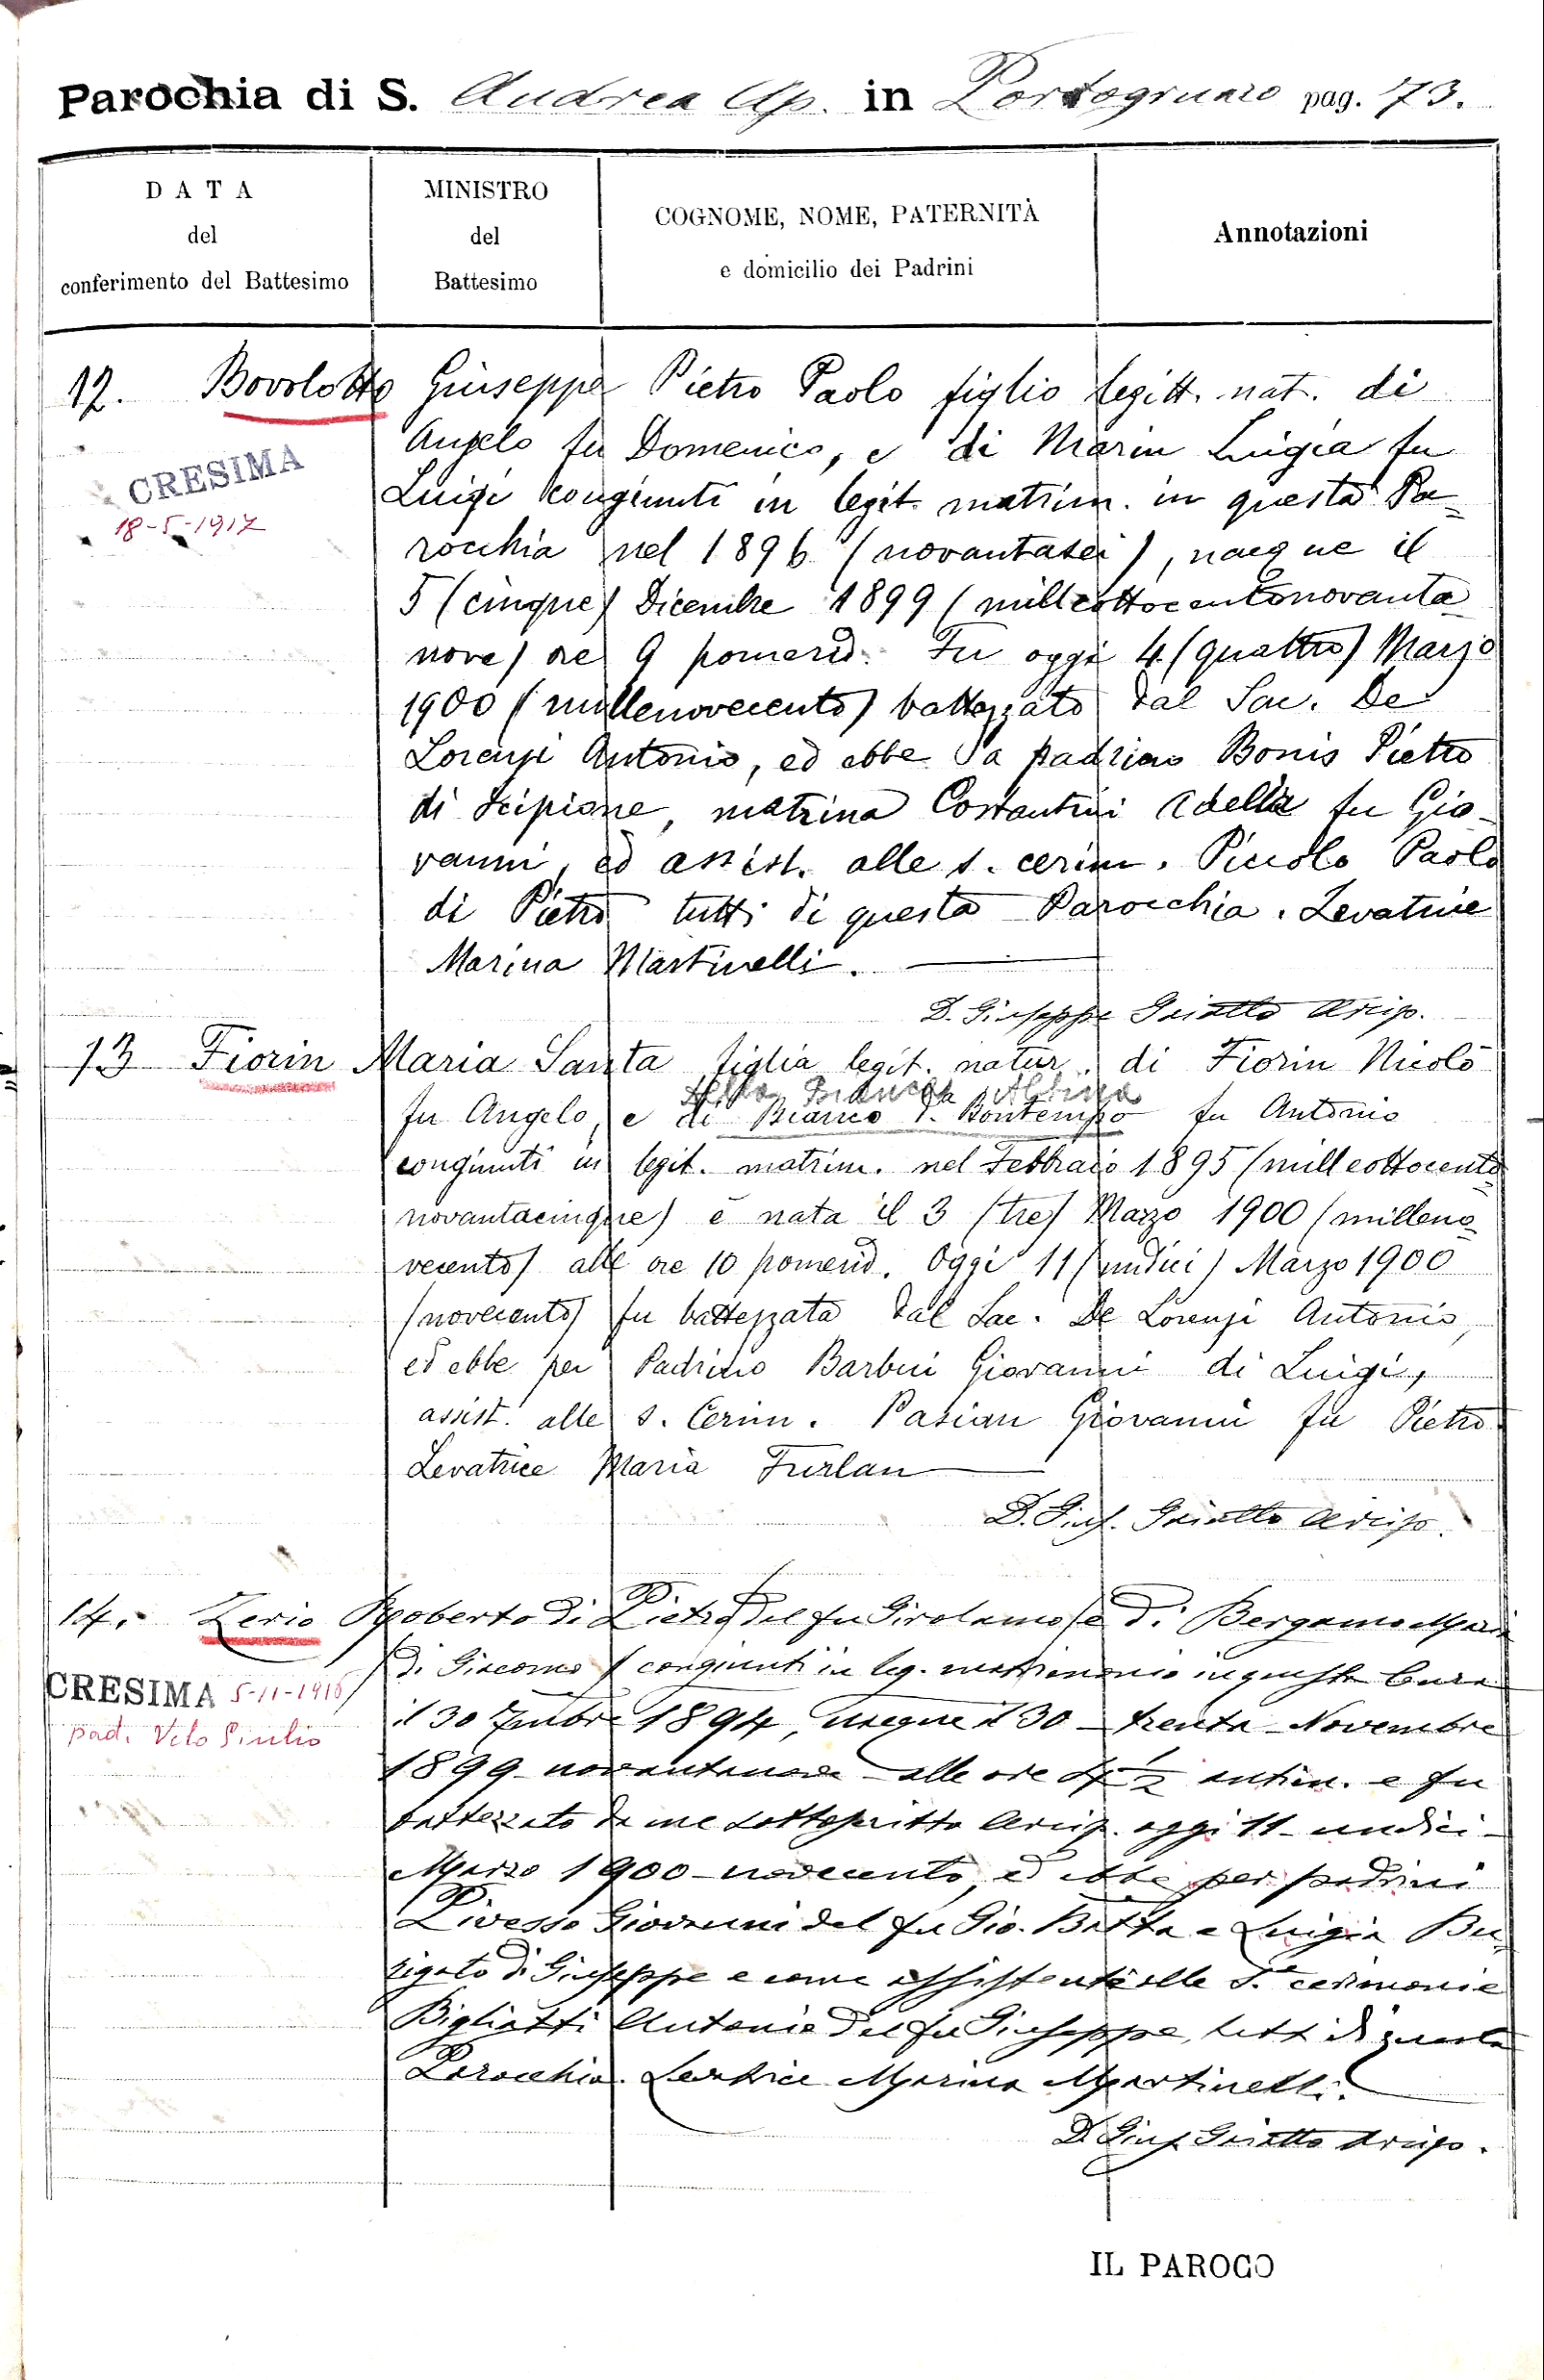 Parochia di S. Andrea Ap. in Portogruaro pag. 73.
DATA
del
conferimento del Battesimo
MINISTRO
del
Battesimo
COGNOME, NOME, PATERNITÀ
e domicilio dei Padrini
Annotazioni
12. Bovolotto Giuseppe Pietro Paolo figlio legitt. nat. di
Angelo fu Domenico, e di Marin Luigia fu
Luigi congiunti in legit. matrim. in questa Pa-
rocchia nel 1896 (novantasei), nacque il
5 (cinque) Dicembre 1899 (milleottocentonovanta
nove) ore 9 pomerid. Fu oggi 4 (quattro) Marzo
1900 (millenovecento) battezzato dal Sac. De
Lorenzi Antonio, ed ebbe da padrino Bonis Pietro
di Scipione, matrina Costantini Adella fu Gio-
vanni, ed assist. alle s. cerim. Piccolo Paolo
di Pietro tutti di questa Parocchia. Levatrice
Marina Martinelli.
D. Giuseppe Arcip.
CRESIMA
18-5-1917
13 Fiorin Maria Santa figlia legit. natur. di Fiorin Nicolò
della Bianca
fu Angelo, e di Bianco d. Bontempo fu Antonio
congiunti in legit. matrim. nel Febbraio 1895 (milleottocento
novantacinque) è nata il 3 (tre) Marzo 1900 (milleno-
vecento) alle ore 10 pomerid. Oggi 11 (undici) Marzo 1900
(novecento) fu battezzata dal Sac. De Lorenzi Antonio,
ed ebbe per Padrino Barbui Giovanni di Luigi,
assist. alle s. Cerim. Pasian Giovanni fu Pietro
Levatrice Maria Furlan
D. Gius. Arcip.
14. Zerio Roberto di Pietro del fu Girolamo e di Bergamo Maria
di Giacomo congiunti in leg. matrimonio in questa Cura
il 30 7mbre 1894, nacque il 30 - trenta - Novembre
1899 - novantanove - alle ore 4 1/2 antim. e fu
battezzato da me sottoscritto Arcip. oggi 11 - undici -
Marzo 1900 - novecento, ed ebbe per padrini
Giovanni del fu Gio. Batta e Luigia Bu-
rigato di Giuseppe e come assistente alle S.e cerimonie
Bigliatti Antonio del fu Giuseppe, tutti di questa
Parocchia. Levatrice Marina Martinelli.
D. Gius. Arcip.
CRESIMA 5-11-1916
pad. Vito Giulio
IL PAROCO